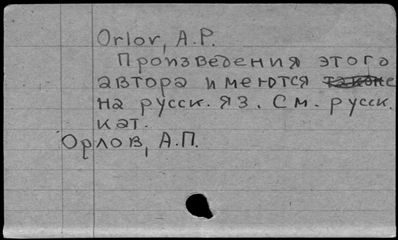 Orlov, A.P.
Произведения этого
автора имеются также
на русск. яз. См. русск.
кат.
Орлов, А.П.